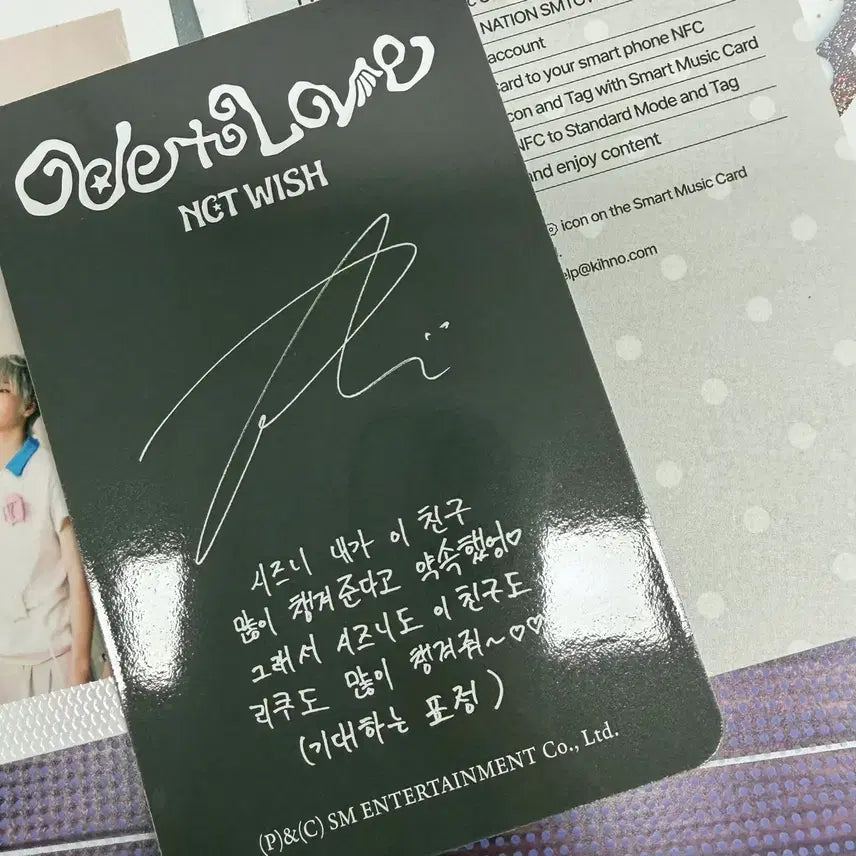 Ode to Love
NCT WISH
시즈니 내가 이 친구
많이 챙겨준다고 약속했엉♡
그래서 시즈니도 이 친구도
리쿠도 많이 챙겨줘~♡♡
(기대하는 표정)
(P)&(C) SM ENTERTAINMENT Co., Ltd.
NATION SMTOW
account
card to your smart phone NFC
icon and Tag with Smart Music Card
NFC to Standard Mode and Tag
and enjoy content
icon on the Smart Music Card
help@kihno.com